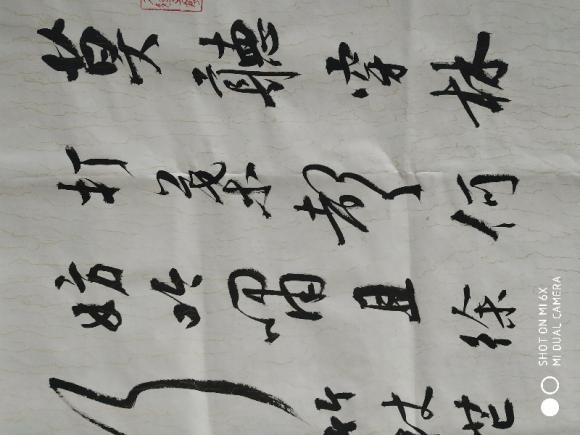 莫聽穿林
打葉聲何
妨吟嘯且徐
行竹杖芒
SHOT ON MI 6X
MI DUAL CAMERA